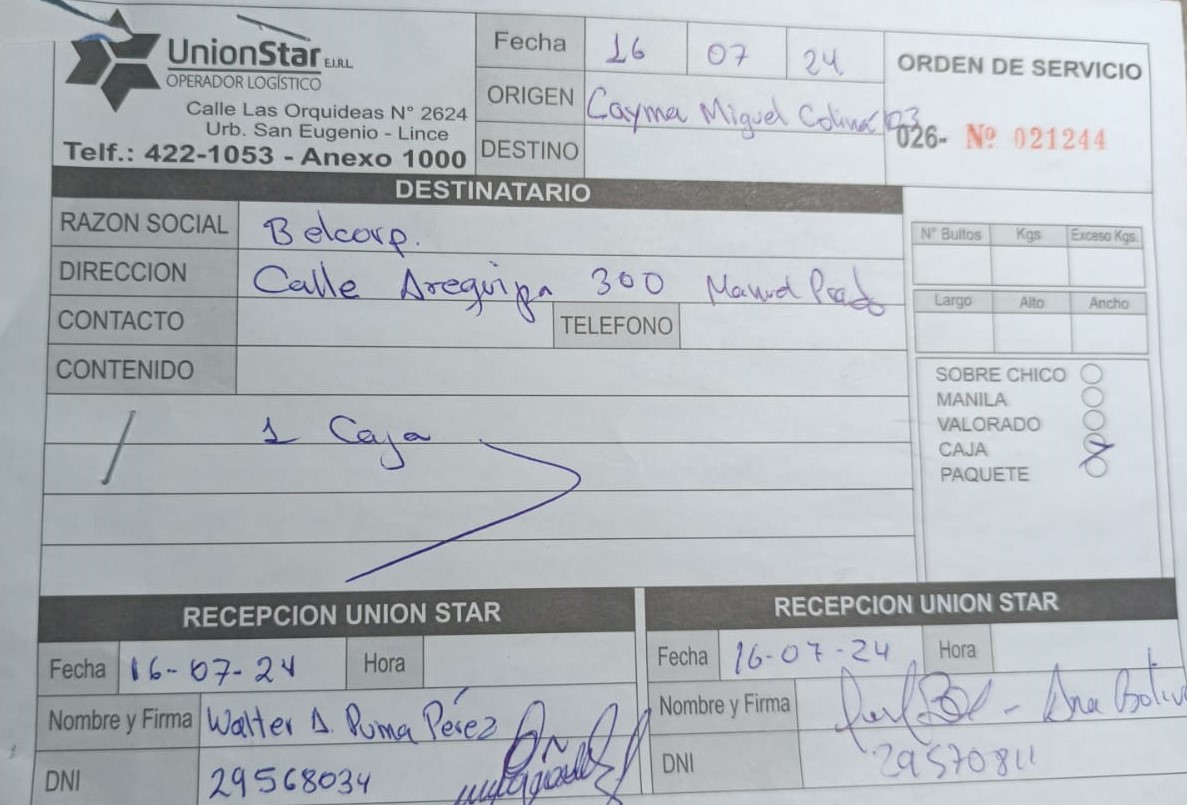 UnionStar E.I.R.L.
OPERADOR LOGÍSTICO
Calle Las Orquideas N° 2624
Urb. San Eugenio - Lince
Telf.: 422-1053 - Anexo 1000
Fecha 16 07 24
ORIGEN Cayma Miguel Colina 103
DESTINO
ORDEN DE SERVICIO
026- Nº 021244
DESTINATARIO
RAZON SOCIAL Belcorp.
DIRECCION Calle Arequipa 300 Manuel Prado
CONTACTO TELEFONO
CONTENIDO
1 Caja
N° Bultos Kgs Exceso Kgs.
Largo Alto Ancho
SOBRE CHICO
MANILA
VALORADO
CAJA
PAQUETE
RECEPCION UNION STAR
Fecha 16-07-24 Hora
Nombre y Firma Walter D. Puma Pérez
DNI 29568034
RECEPCION UNION STAR
Fecha 16-07-24 Hora
Nombre y Firma - Ana Boliv
DNI 29570811